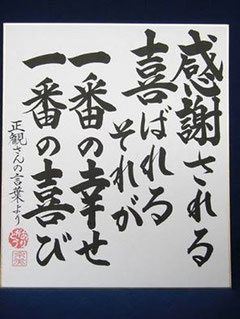 感謝される
喜ばれる
それが
一番の幸せ
一番の喜び
正観さんの言葉より